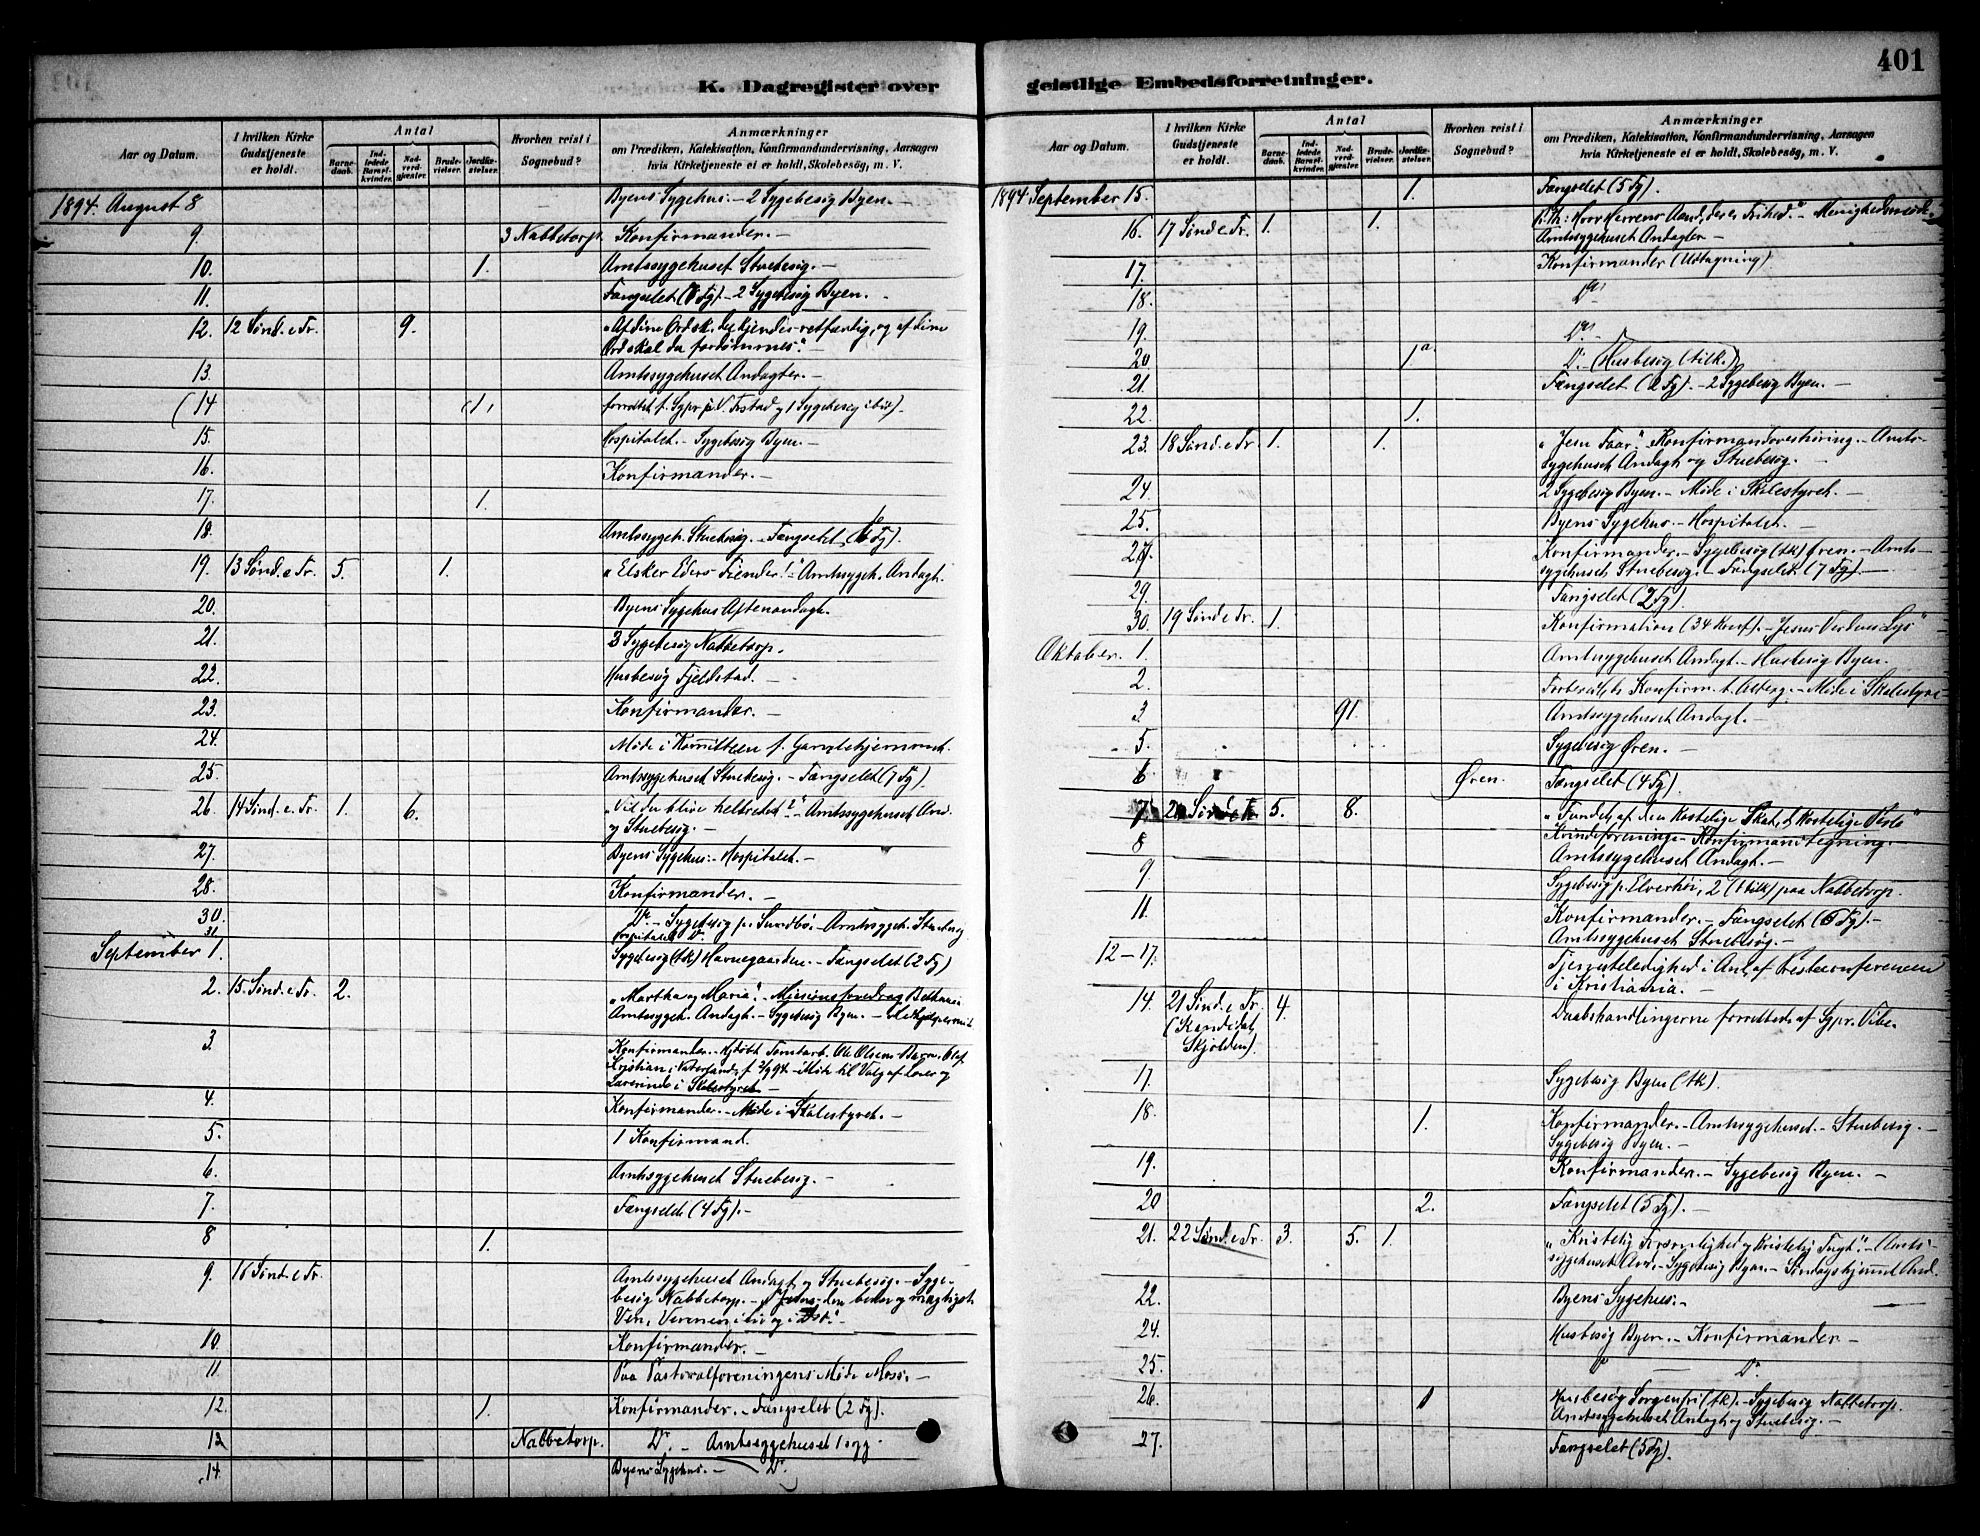 K. Dagregister over
Aar og Datum.
I hvilken Kirke Gudstjeneste er holdt.
Antal
Barne-daab.
Ind-ledede Barsel-kvinder.
Nad-verd-gjæster.
Brude-vielser.
Jordfæ-stelser.
Hvorhen reist i Sognebud?
Anmærkninger
om Prædiken, Katekisation, Konfirmandundervisning, Aarsagen
hvis Kirketjeneste ei er holdt, Skolebesög, m. V.
1894. August 8 Byens Sygehus. – 2 Sygebesög Byen. –
9. 3 Nabbetorp. Konfirmander. –
10. 1. Amtssygehuset Stuebesög. –
11. Fængselet (6 Fg) – 2 Sygebesög Byen. –
12. 12 Sönd. e Tr. 9. „Af dine Ord sk. du kjendes retfærdig, og af dine
Ord skal du fordömmes". –
13. Amtssygehuset Andagter. –
(14 (1,
15. Hospitalet. – Sygebesög Byen. –
16. Konfirmander. –
17. 1.
18. Amtssygeh. Stuebesög. – Fængselet (6 Fg).
19. 13 Sönd. e Tr. 5. 1. „Elsker Eders Fiender!" – Amtssygeh. Andagt.
20. Byens Sygehus Aftenandagt.
21. 3 Sygebesög Nabbetorp.
22. Husbesög Fjeldstad.
23. Konfirmander. –
24. Möde i Komitteen f. Gamlehjemmet.
25. Amtssygehuset Stuebesög. – Fængselet (7 Fg).
26. 14 Sönd. e Tr. 1. 6. „Vil du blive helbredet?" – Amtssygehuset And.
og Stuebesög. –
27. Byens Sygehus. – Hospitalet. –
28. Konfirmander. –
30. Do. – Sygebesög pr. Sundbö. – Amtssygeh. Stuebesög
31 Hospitalet Do.
September 1. Sygebesög (tk) Havnegaarden. – Fængselet (2 Fg)
2. 15. Sönd. e Tr. 2. „Martha og Maria". – Missionsforedrag Bethania.
Amtssygeh. Andagt. – Sygebesög Byen. –
3. Konfirmander. – Hjdöbt Tomtarb. Ole Olsens Barn, Olaf
Kristian i Vaterland, f. 2/9 94 – Möde til Valg af Lærer og
Lærerinde i Skolestyret
4. Konfirmander. – Möde i Skolestyret. –
5. 1 Konfirmand.
6. Amtssygehuset Stuebesög. –
7. Fængselet (4 Fg). –
8 1.
9. 16 Sönd. e Tr. Amtssygehuset Andagt og Stuebesög. – Syge-
besög Nabbetorp. – „Jesus den bedste og mægtigste
Ven, Vennen i Liv og i Död". –
10. Konfirmander. –
11 Paa Pastoralforeningens Möde Moss. –
12. 1. Konfirmander. – Fængselet (2 Fg).
13 Nabbetorp. Do. – Amtssygehuset 1 syg. –
14. Byens Sygehus. – Do.
geistlige Embedsforretninger.
401
Aar og Datum.
I hvilken Kirke Gudstjeneste er holdt.
Antal
Barne-daab.
Ind-ledede Barsel-kvinder.
Nad-verd-gjæster.
Brude-vielser.
Jordfæ-stelser.
Hvorhen reist i Sognebud?
Anmærkninger
om Prædiken, Katekisation, Konfirmandundervisning, Aarsagen
hvis Kirketjeneste ei er holdt, Skolebesög, m. V.
1894 September 15. 1. Fængselet (5 Fg).
16. 17 Sönd e Tr. 1. 1. Hvor Herrens Aand, der er Frihed." – Menighedsmöde.
Amtssygehuset Andagter –
17. Konfirmander (Udtagning)
18. Do
19. Do –
20 1 Do. – (Husbesög (tilk.)
21. Fængselet (2 Fg). – 2 Sygebesög Byen. –
22. 1.
23. 18 Sönd. e Tr 1. 1. „Jesu Faar". Konfirmandoverhöring. – Amts-
sygehuset Andagt og Stuebesög. –
24. 2 Sygebesög Byen. – Möde i Skolestyret. –
25. Byens Sygehus – Hospitalet. –
27. Konfirmander. – Sygebesög (tk) Øren. – Amts-
sygehuset Stuebesög. – Fængselet (7 Fg). –
29. Fængselet (2 Fg).
30. 19 Sönd e Tr. 1. Konfirmation (34 Konf). – „Jesus Verdens Lys"
Oktober. 1. Amtssygehuset Andagt. – Husbesög Byen.
2. Konfirm. t. Alterg. – Möde i Skolestyret
3 91. Amtssygehuset Andagt. –
5. Sygebesög Øren. –
6 Øren. Fængselet (4 Fg).
7. 20 Sönd e Tr 5. 8. „Fundet af den kostelige Skat, d. kostelige Perle"
Kvindeforening – Konfirmandtegning. –
8 Amtssygehuset Andagt. –
9 Sygebesög p. Elverhöi, 2 (tilk) paa Nabbetorp.
11. Konfirmander. – Fængselet (6 Fg). –
Amtssygehuset Stuebesög. –
12 – 17. Tjenesteledighed i Anl. af Prestekonferencen
i Kristiania. –
14. 21 Sönd e Tr. 4. Daabshandlingerne forrettede af Sgpr. Vibe.
(Kandidat
Skjölden).
17. Sygebesög Byen (tk).
18. 1. Konfirmander. – Amtssygehuset – Stuebesög. –
Sygebesög Byen. –
19. Konfirmander. – Sygebesög Byen. –
20 2. Fængselet (5 Fg). –
21. 22 Sönd. e Tr. 3. 5. 1. „Kristelig Forsonlighed og Kristelig Tugt". – Amts-
sygehuset And. – Sygebesög Byen – Söndagshjemmet And.
22. Byens Sygehus. –
24. Husbesög Byen. – Konfirmander –
25. Do – Do.
26. 1 Husbesög Sorgenfri (tk). – Sygebesög Nabbetorp.
Amtssygehuset Andagt og Stuebesög. –
27. Fængselet (5 Fg).